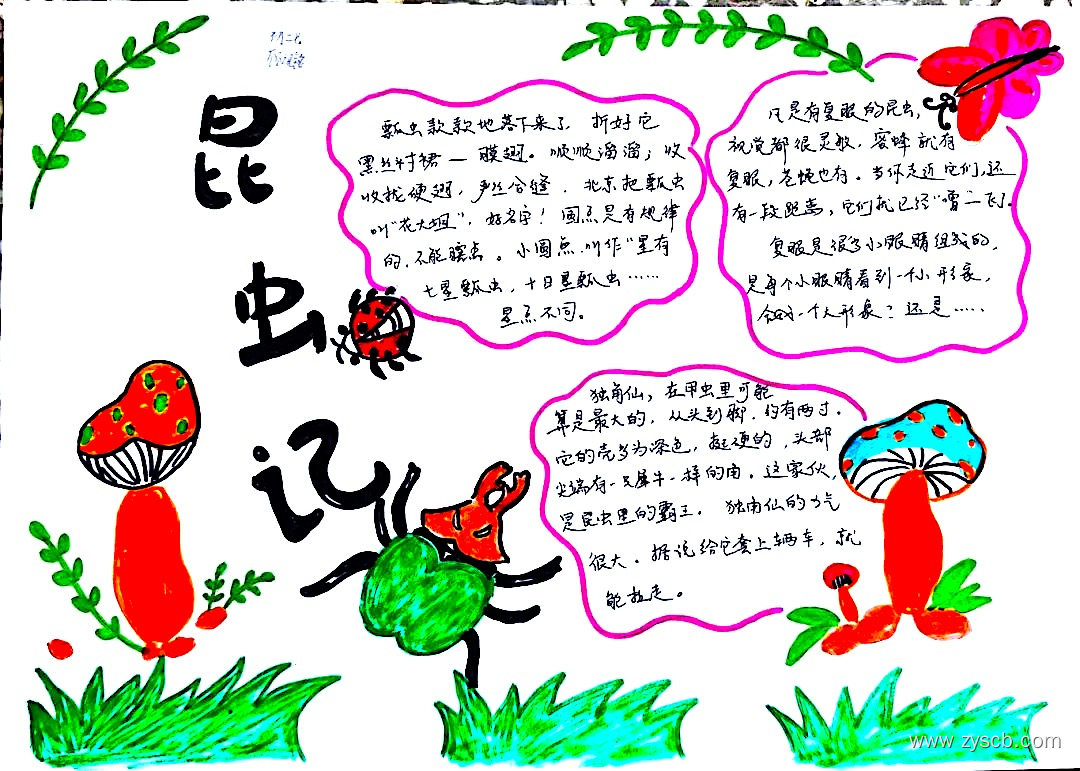 昆虫记
瓢虫款款地落下来了，折好它
黑丝衬裙——膜翅。顺顺溜溜；收
收拢硬翅，严丝合缝，北京把瓢虫
叫“花大姐”，好名字！圆点是有规律
的，不能瞎点。小圆点，叫作“星有
七星瓢虫，十四星瓢虫……
星点不同。
凡是有复眼的昆虫，
视觉都很灵敏，蜜蜂就有
复眼，苍蝇也有。当你走近它们，还
有一段距离，它们就已经“噌”一飞了。
复眼是很多小眼睛组成的，
是每个小眼睛看到一个小形象，
合成一个大形象？还是……
独角仙，在甲虫里可能
算是最大的，从头到脚，约有两寸，
它的壳多为深色，挺硬的，头部
尖端有一只犀牛一样的角。这家伙，
是昆虫里的霸王。独角仙的力气
很大。据说给它套上辆车，就
能拉走。
www.zyscb.com